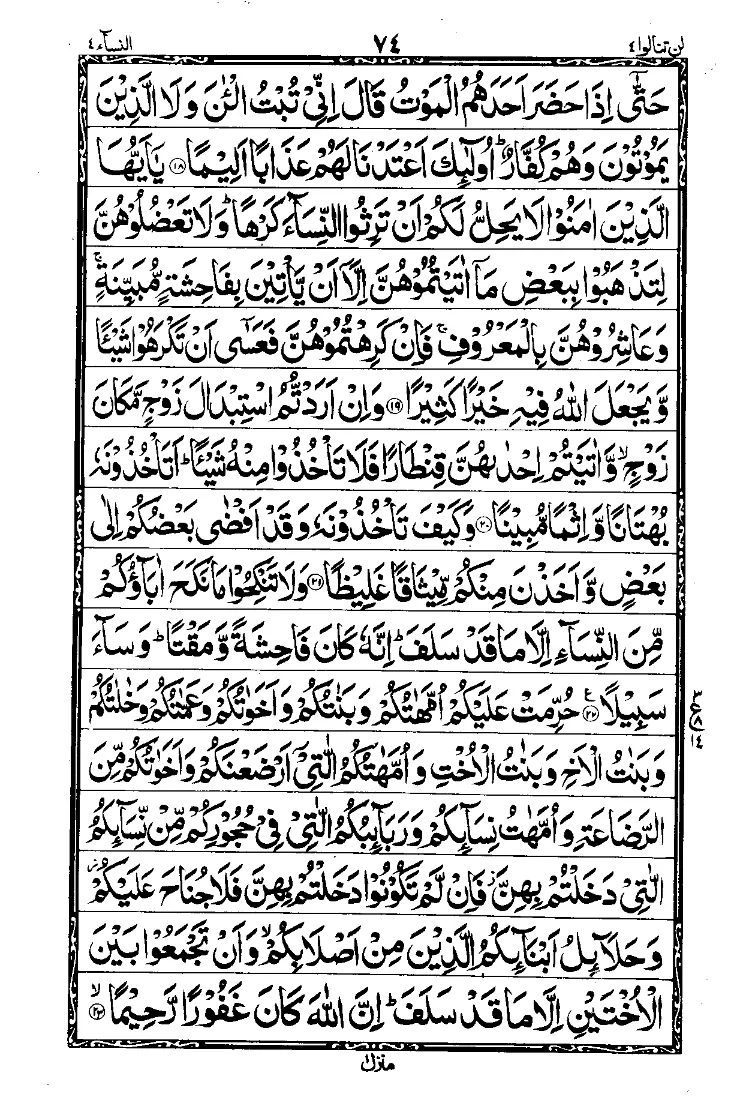 لن تنالوا٤ ٧٤ النسآء٤
حَتّٰۤى اِذَا حَضَرَ اَحَدَهُمُ الْمَوْتُ قَالَ اِنِّیْ تُبْتُ الْـٰٔنَ وَلَا الَّذِیْنَ
یَمُوْتُوْنَ وَهُمْ كُفَّارٌ ؕ اُولٰٓئِكَ اَعْتَدْنَا لَهُمْ عَذَابًا اَلِیْمًا ۝۱۸ یٰۤاَیُّهَا
الَّذِیْنَ اٰمَنُوْا لَا یَحِلُّ لَكُمْ اَنْ تَرِثُوا النِّسَآءَ كَرْهًا ؕ وَلَا تَعْضُلُوْهُنَّ
لِتَذْهَبُوْا بِبَعْضِ مَاۤ اٰتَیْتُمُوْهُنَّ اِلَّاۤ اَنْ یَّاْتِیْنَ بِفَاحِشَةٍ مُّبَیِّنَةٍ ۚ
وَعَاشِرُوْهُنَّ بِالْمَعْرُوْفِ ۚ فَاِنْ كَرِهْتُمُوْهُنَّ فَعَسٰۤى اَنْ تَكْرَهُوْا شَیْـًٔا
وَّیَجْعَلَ اللّٰهُ فِیْهِ خَیْرًا كَثِیْرًا ۝۱۹ وَاِنْ اَرَدْتُّمُ اسْتِبْدَالَ زَوْجٍ مَّكَانَ
زَوْجٍ ۙ وَّاٰتَیْتُمْ اِحْدٰىهُنَّ قِنْطَارًا فَلَا تَاْخُذُوْا مِنْهُ شَیْـًٔا ؕ اَتَاْخُذُوْنَهٗ
بُهْتَانًا وَّاِثْمًا مُّبِیْنًا ۝۲۰ وَكَیْفَ تَاْخُذُوْنَهٗ وَقَدْ اَفْضٰى بَعْضُكُمْ اِلٰى
بَعْضٍ وَّاَخَذْنَ مِنْكُمْ مِّیْثَاقًا غَلِیْظًا ۝۲۱ وَلَا تَنْكِحُوْا مَا نَكَحَ اٰبَآؤُكُمْ
مِّنَ النِّسَآءِ اِلَّا مَا قَدْ سَلَفَ ؕ اِنَّهٗ كَانَ فَاحِشَةً وَّمَقْتًا ؕ وَسَآءَ
سَبِیْلًا ۝۲۲ ع حُرِّمَتْ عَلَیْكُمْ اُمَّهٰتُكُمْ وَبَنٰتُكُمْ وَاَخَوٰتُكُمْ وَعَمّٰتُكُمْ وَخٰلٰتُكُمْ
۳ ع ۸ ۱۴
وَبَنٰتُ الْاَخِ وَبَنٰتُ الْاُخْتِ وَاُمَّهٰتُكُمُ الّٰتِیْۤ اَرْضَعْنَكُمْ وَاَخَوٰتُكُمْ مِّنَ
الرَّضَاعَةِ وَاُمَّهٰتُ نِسَآىِٕكُمْ وَرَبَآىِٕبُكُمُ الّٰتِیْ فِیْ حُجُوْرِكُمْ مِّنْ نِّسَآىِٕكُمُ
الّٰتِیْ دَخَلْتُمْ بِهِنَّ ؗ فَاِنْ لَّمْ تَكُوْنُوْا دَخَلْتُمْ بِهِنَّ فَلَا جُنَاحَ عَلَیْكُمْ ؗ
وَحَلَآىِٕلُ اَبْنَآىِٕكُمُ الَّذِیْنَ مِنْ اَصْلَابِكُمْ ۙ وَاَنْ تَجْمَعُوْا بَیْنَ
الْاُخْتَیْنِ اِلَّا مَا قَدْ سَلَفَ ؕ اِنَّ اللّٰهَ كَانَ غَفُوْرًا رَّحِیْمًا ۝۲۳ ۙ
منزل